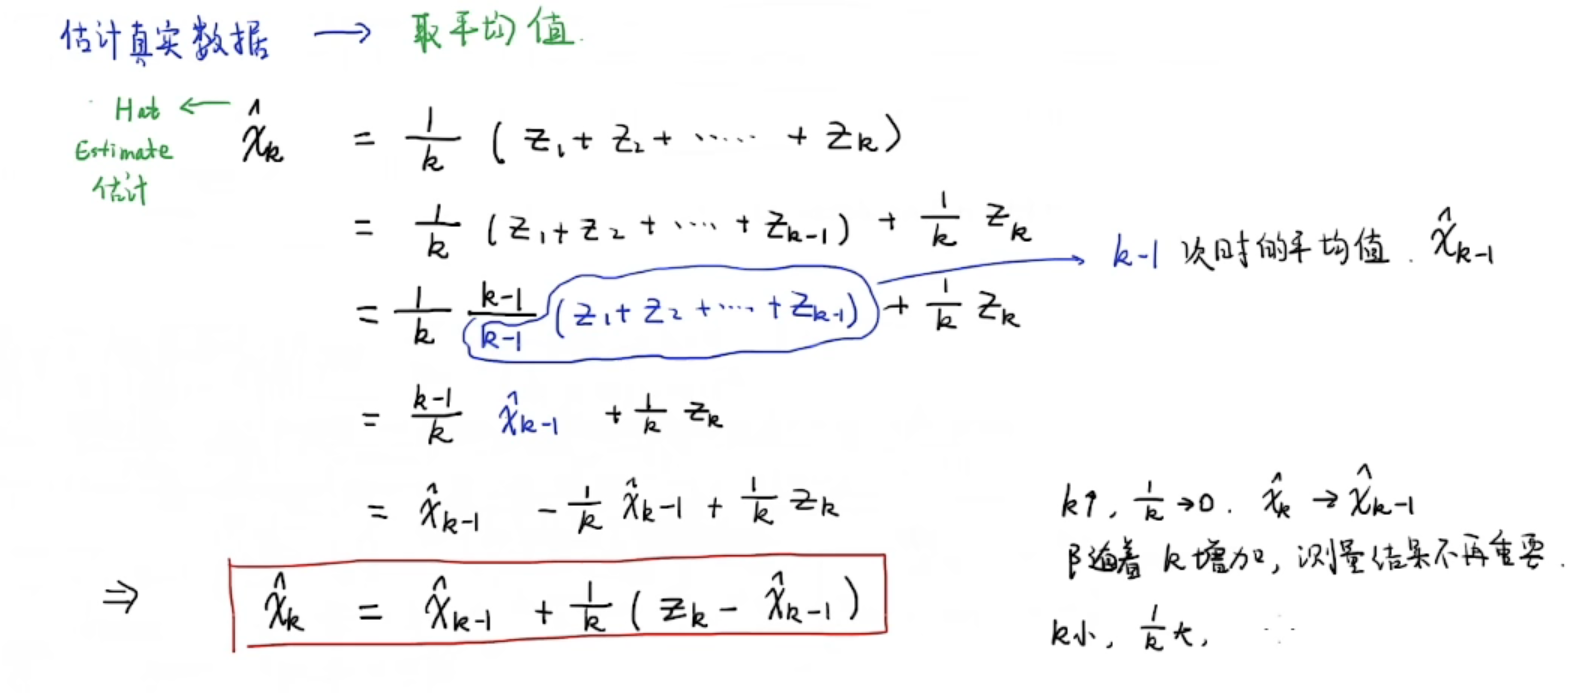 估计真实数据 → 取平均值.
Hat ← x̂ₖ = 1/k ( z₁ + z₂ + ····· + zₖ )
Estimate
估计
= 1/k ( z₁ + z₂ + ···· + zₖ₋₁ ) + 1/k zₖ
k-1 次时的平均值. x̂ₖ₋₁
= 1/k k-1/k-1 ( z₁ + z₂ + ···· + zₖ₋₁ ) + 1/k zₖ
= k-1/k x̂ₖ₋₁ + 1/k zₖ
= x̂ₖ₋₁ - 1/k x̂ₖ₋₁ + 1/k zₖ
⇒ x̂ₖ = x̂ₖ₋₁ + 1/k ( zₖ - x̂ₖ₋₁ )
k↑, 1/k → 0. x̂ₖ → x̂ₖ₋₁
随着 k 增加, 测量结果不再重要.
k小, 1/k 大,